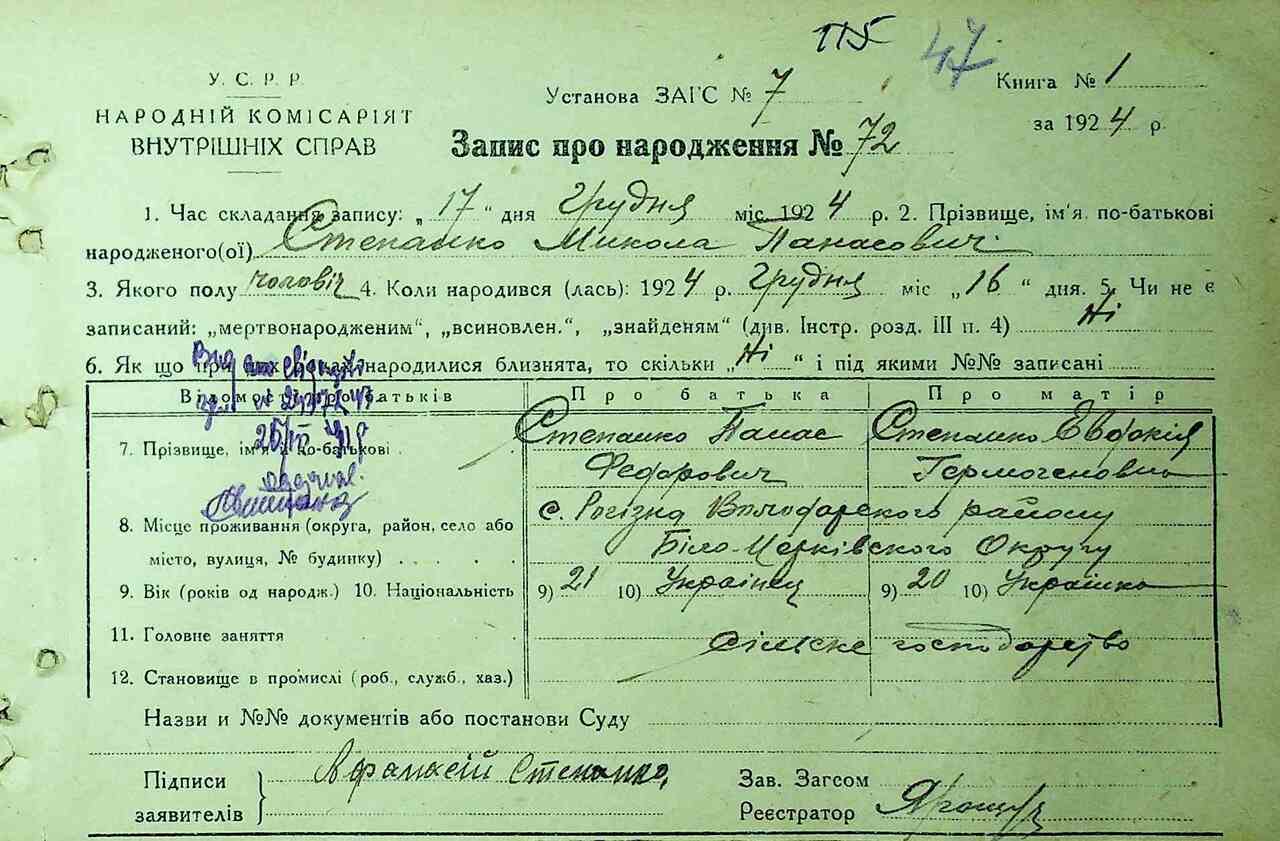 115 47
У. С. Р. Р.
НАРОДНІЙ КОМІСАРІЯТ
ВНУТРІШНІХ СПРАВ
Установа ЗАГС № 7
Книга № 1
за 1924 р.
Запис про народження № 72
1. Час складання запису: „ 17 “ дня Грудня міс. 1924 р. 2. Прізвище, ім'я, по-батькові
народженого(ої) Степанко Микола Панасович.
3. Якого полу чоловіч 4. Коли народився (лась): 1924 р. Грудня міс „ 16 “ дня. 5. Чи не є
записаний: „мертвонародженим“, „всиновлен.“, „знайденям“ (див. Інстр. розд. III п. 4) Ні
6. Як що при народилися близнята, то скільки „ Ні “ і під якими №№ записані
Відомості про батьків Про батька Про матір
7. Прізвище, ім'я й по-батькові Степанко Панас Степанко Євдокія
Федорович Гермогеновна
8. Місце проживання (округа, район, село або с. Рогізна Володарского району
місто, вулиця, № будинку) Біло-Церківского Округу
9. Вік (років од народж.) 10. Національність 9) 21 10) Українец 9) 20 10) Українка
11. Головне заняття сільске господарство
12. Становище в промислі (роб., служб., хаз.)
Назви и №№ документів або постанови Суду
Підписи Афанасій Степанко Зав. Загсом
заявителів Реєстратор